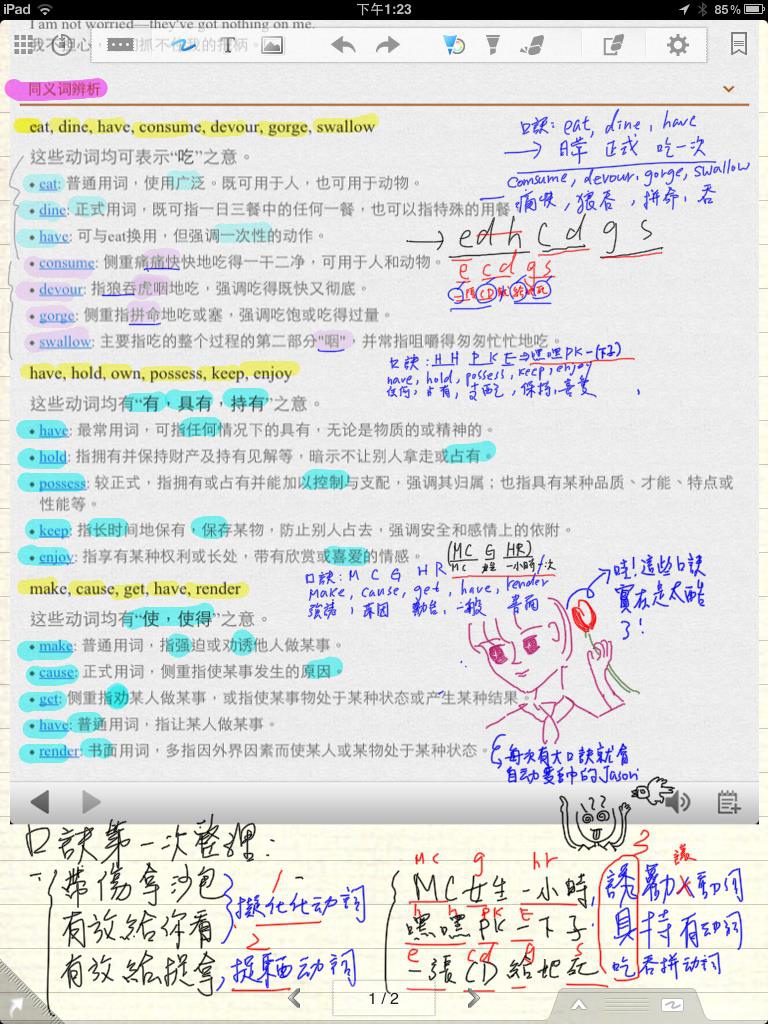 iPad 下午1:23 85%
I am not worried—they've got nothing on me.
T
同义词辨析
eat, dine, have, consume, devour, gorge, swallow
口訣: eat, dine, have
→ 日常 正式 吃一次
这些动词均可表示“吃”之意。
consume, devour, gorge, swallow
痛快, 狼吞, 拼命, 吞
• eat: 普通用词，使用广泛。既可用于人，也可用于动物。
• dine: 正式用词，既可指一日三餐中的任何一餐，也可以指特殊的用餐
• have: 可与eat换用，但强调一次性的动作。
→ e d h c d g s
• consume: 侧重痛痛快快地吃得一干二净，可用于人和动物。
e c d g s
一張 CD 就 給他死
• devour: 指狼吞虎咽地吃，强调吃得既快又彻底。
• gorge: 侧重指拼命地吃或塞，强调吃饱或吃得过量。
• swallow: 主要指吃的整个过程的第二部分"咽"，并常指咀嚼得匆匆忙忙地吃。
口訣: H H P K E ⇒ 嘿嘿PK一(下子)
have, hold, possess, keep, enjoy
任何, 占有, 支配, 保持, 喜愛
have, hold, own, possess, keep, enjoy
这些动词均有“有，具有，持有”之意。
• have: 最常用词，可指任何情况下的具有，无论是物质的或精神的。
• hold: 指拥有并保持财产及持有见解等，暗示不让别人拿走或占有。
• possess: 较正式，指拥有或占有并能加以控制与支配，强调其归属；也指具有某种品质、才能、特点或
性能等。
• keep: 指长时间地保有，保存某物，防止别人占去，强调安全和感情上的依附。
• enjoy: 指享有某种权利或长处，带有欣赏或喜爱的情感。
(MC G HR)
MC 女生 一小時一次
口訣: M C G H R
make, cause, get, have, render
強誘, 原因 勸台, 一般 書面
哇! 這些口訣
實在是太酷
了!
make, cause, get, have, render
这些动词均有“使，使得”之意。
• make: 普通用词，指强迫或劝诱他人做某事。
• cause: 正式用词，侧重指使某事发生的原因。
• get: 侧重指劝某人做某事，或指使某事物处于某种状态或产生某种结果。
• have: 普通用词，指让某人做某事。
• render: 书面用词，多指因外界因素而使某人或某物处于某种状态。
每次有大口訣就會
自动變帥的Jason
??
口訣第一次整理:
帶傷拿沙包
有放給你看
1
擬化化动詞
2
有放給捉拿, 捉驅动詞
MC g hr
MC女生一小時,
h h PK E
嘿嘿PK一下子
e cd g s
一張CD給他死
3
誘勸讓动詞
具持有动詞
吃吞拼动詞
1 / 2